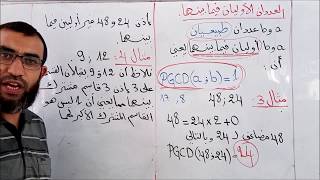 العددان الأوليان فيما بينهما
a و b عددان طبيعيان
a و b أوليان فيما بينهما يعني
أن:
PGCD(a;b)=1
17 , 8
مثال 3: 24 ; 48
48=24×2+0
48 مضاعف لـ 24 وبالتالي
PGCD(48;24)=24
إذن 24 و 48 غير أوليين فيما
بينهما
مثال 4: 12 ; 9
نلاحظ أن 12 و 9 يقبلان القسمة
على 3 إذن 3 قاسم مشترك
بينهما يعني أن 1 ليس هو
القاسم المشترك الأكبر لهما